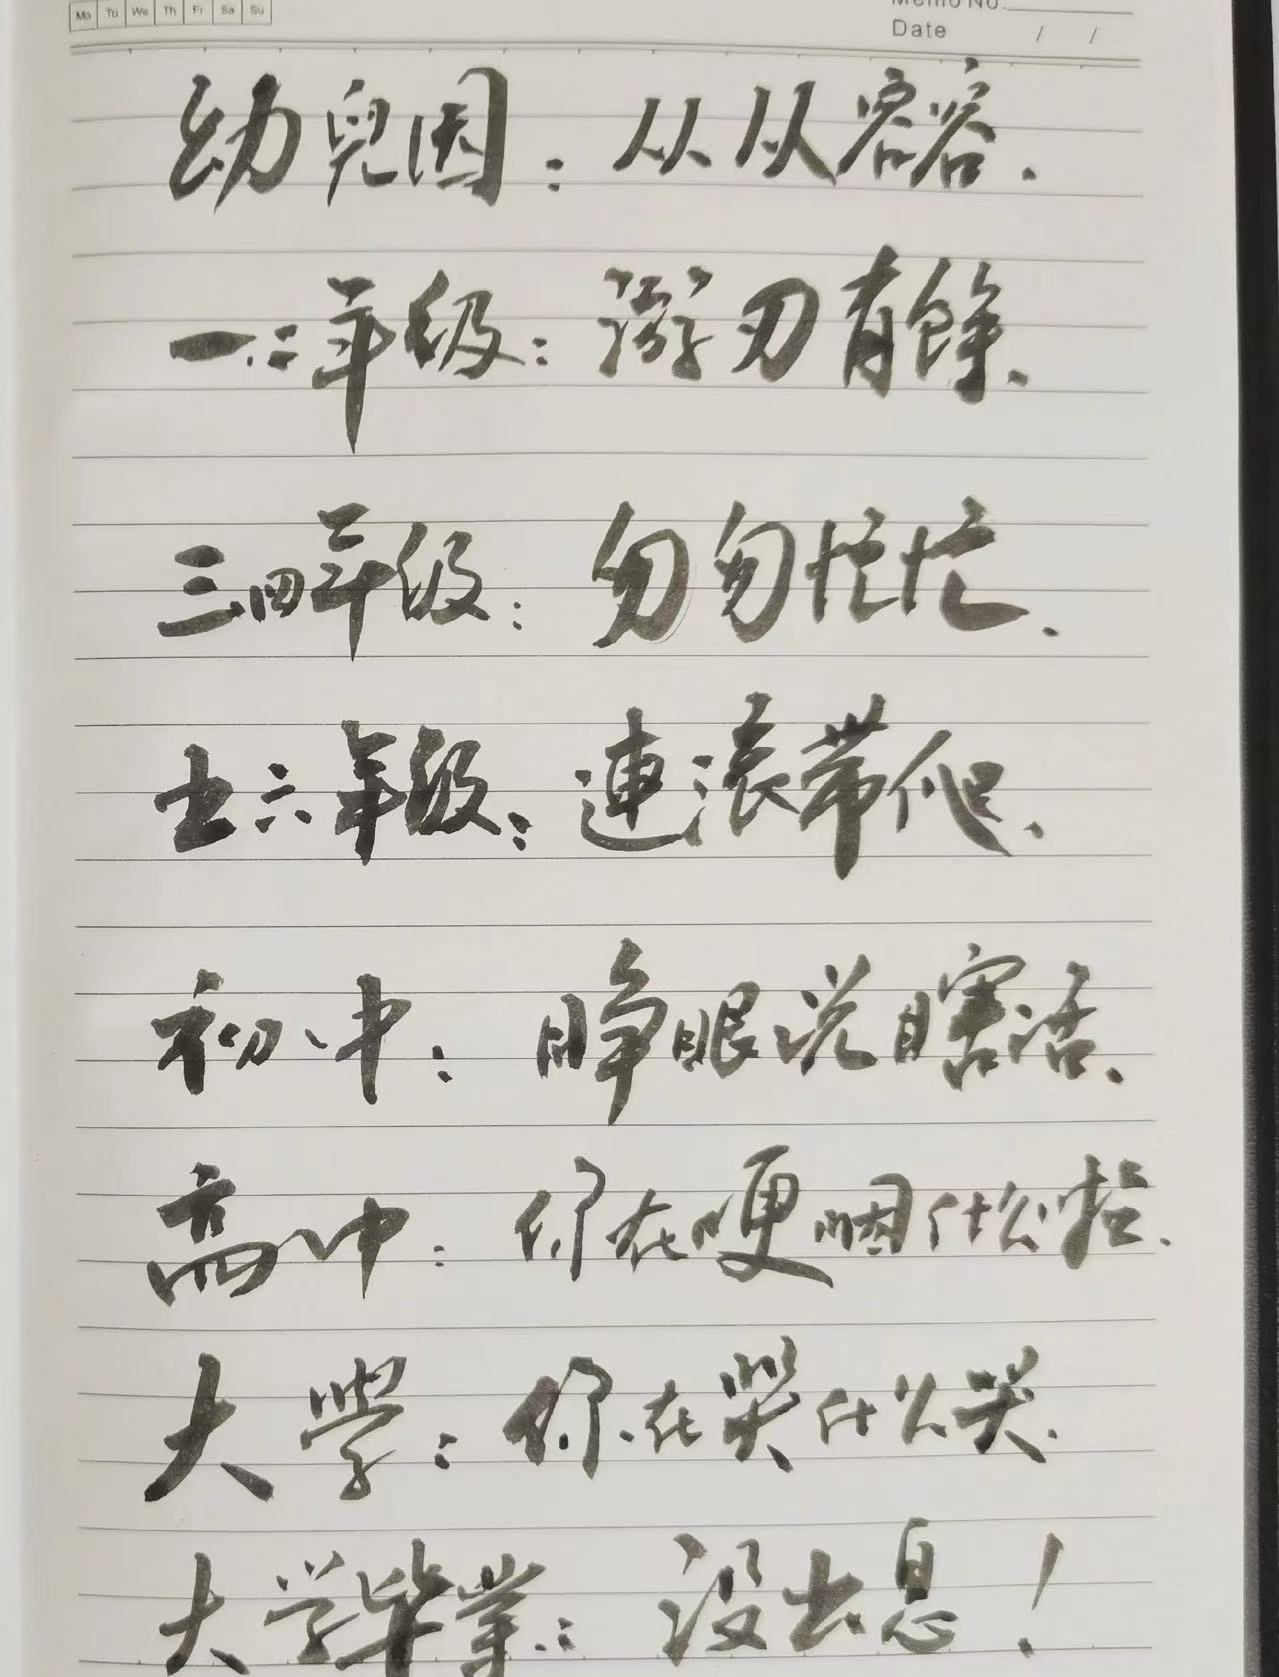 Mo Tu We Th Fr Sa Su
Memo No.
Date / /
幼兒园：从从容容.
一.二年级：游刃有餘.
三.四年级：匆匆忙忙.
五六年级：連滚带爬.
初中：睁眼说瞎话.
高中：你在哽咽什么啦.
大學：你在哭什么哭.
大学毕業：没出息！